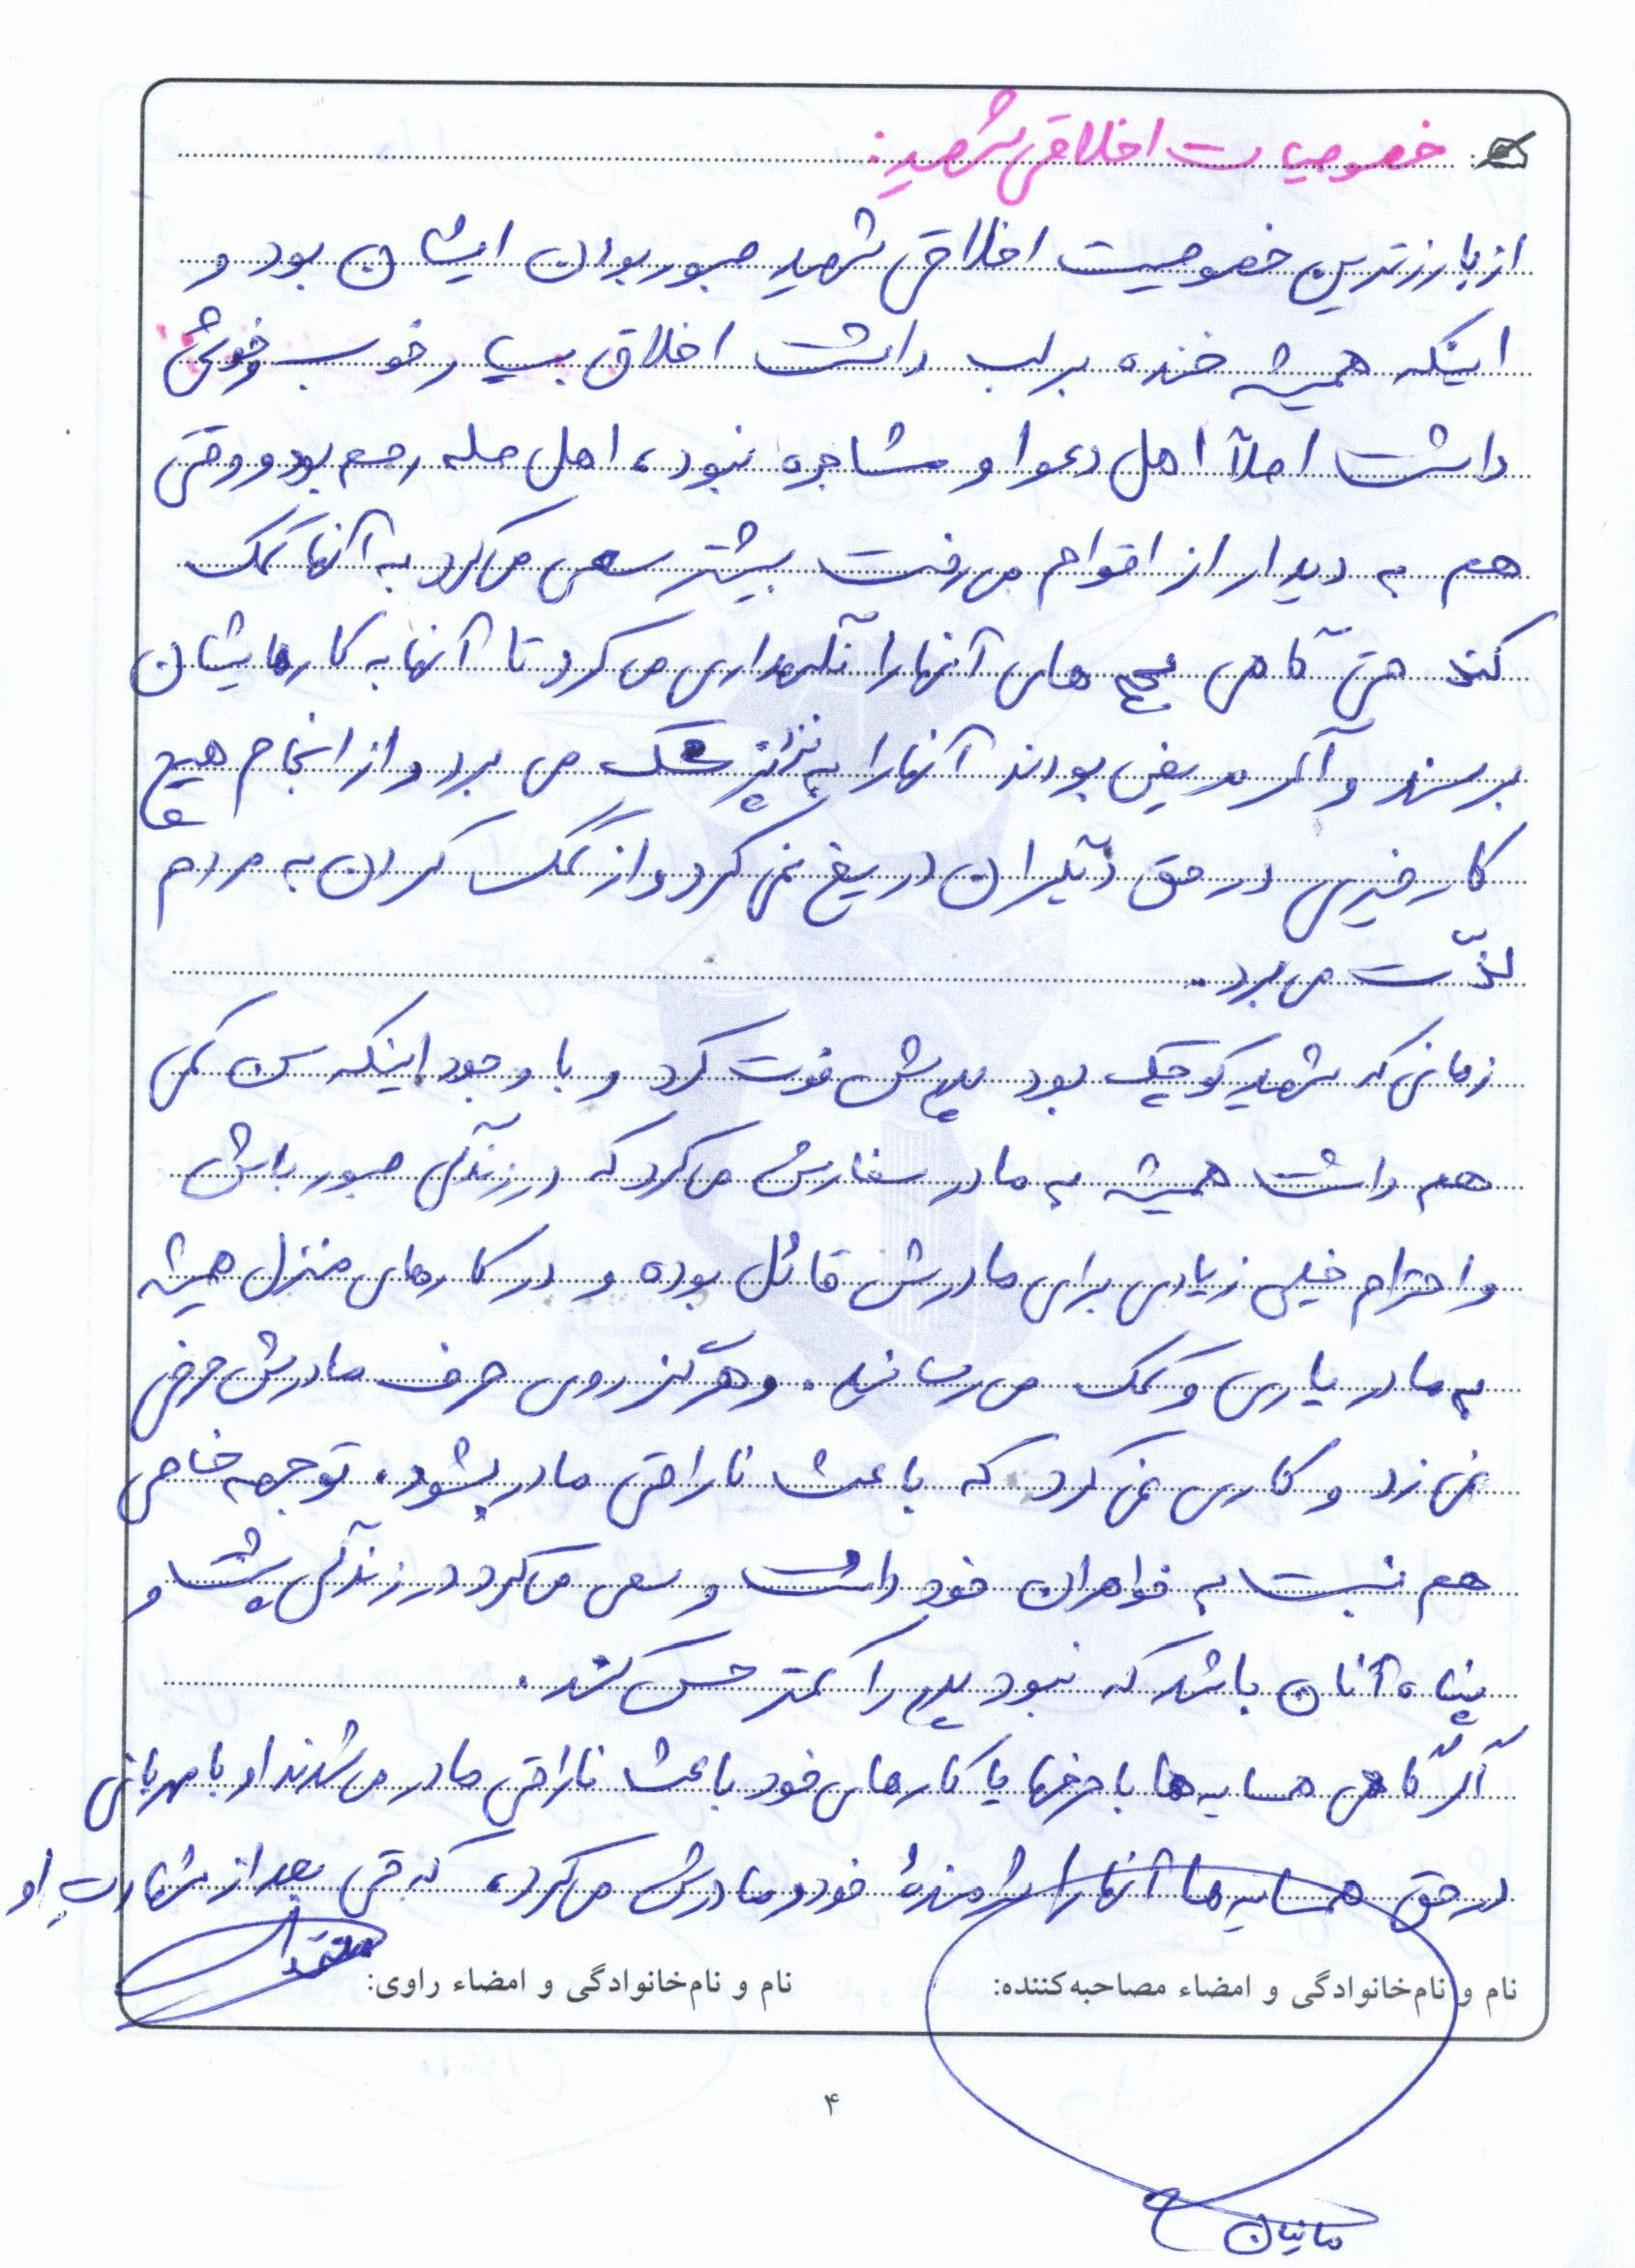 خصوصیات اخلاقی شهید:
از بارزترین خصوصیت اخلاقی شهید صبور بودن ایشان بود و
اینکه همیشه خنده بر لب داشت اخلاق بسیار خوب و خوشی
داشت اصلاً اهل دعوا و مشاجره نبود، اهل صله رحم بود و وقتی
هم به دیدار از اقوام می‌رفت بیشتر سعی می‌کرد به آنها کمک
کند حتی گاهی بچه‌های آنها را نگهداری می‌کرد تا آنها به کارهایشان
برسند و اگر مریض بودند آنها را به نزد پزشک می‌برد و از انجام هیچ
کار خیری در حق دیگران دریغ نمی‌کرد و از کمک کردن به مردم
لذّت می‌برد.
زمانی که شهید کوچک بود پدرش فوت کرد و با وجود اینکه سن کمی
هم داشت همیشه به مادر سفارش می‌کرد که در زندگی صبور باش
و احترام خیلی زیادی برای مادرش قائل بوده و در کارهای منزل همیشه
به مادر یاری و کمک می‌رسانید. و هرگز روی حرف مادرش حرفی
نمی‌زد و کاری نمی‌کرد که باعث ناراحتی مادر بشود. توجهه خاصی
هم نسبت به خواهران خود داشت و سعی می‌کرد در زندگی پشت و
پناه آنان باشد که نبود پدر را کمتر حس کنند.
اگر گاهی همسایه‌ها با حرفها یا کارهای خود باعث ناراحتی مادر می‌شدند او با مهربانی
در حق همسایه‌ها آنها را شرمندهٔ خود و مادرش می‌کرد، که حتی بعد از شهادتِ او
نام و نام‌خانوادگی و امضاء مصاحبه‌کننده:
نام و نام‌خانوادگی و امضاء راوی:
۴